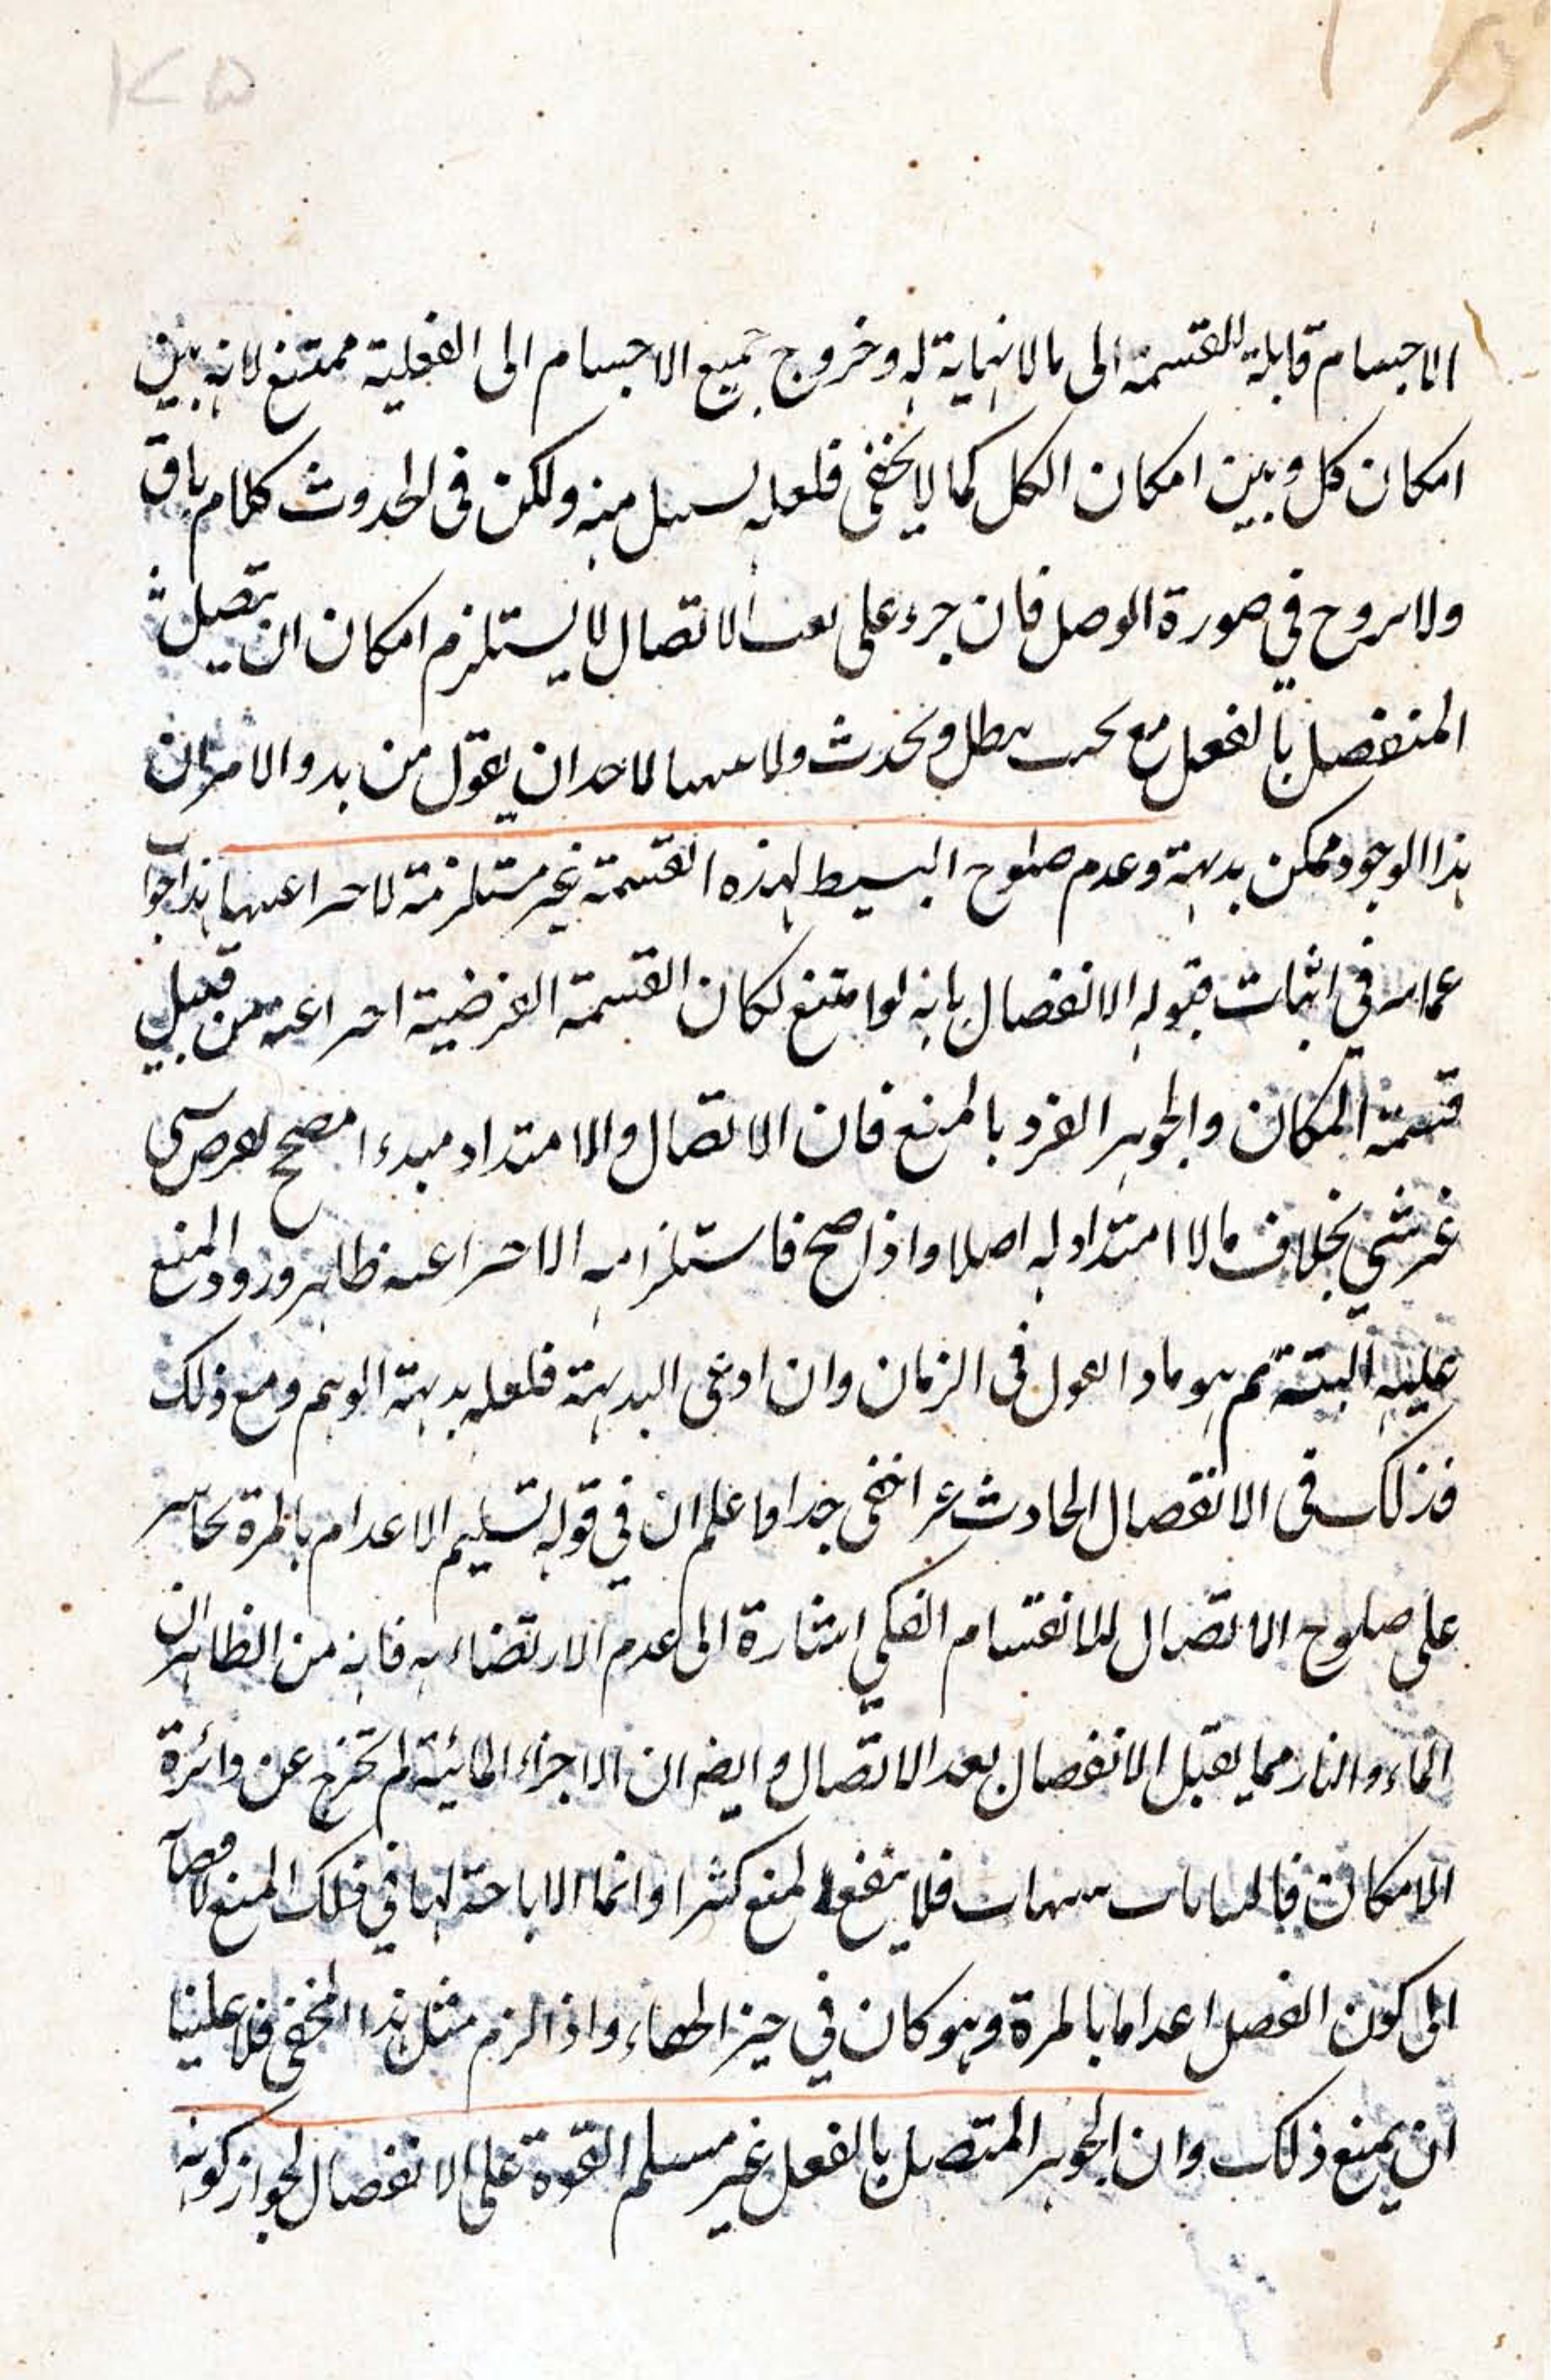 ١٢٥
الاجسام قابلة للقسمة الى ما لا نهاية له وخروج جميع الاجسام الى الفعلية ممتنع لانه بين
امكان كل وبين امكان الكل كما لا يخفى فلعله لسبيل منه ولكن فى الحدوث كلام باق
ولا يروح في صورة الوصل فان جزء على الاتصال لا يستلزم امكان ان يتصل
المنفصل بالفعل مع يبطل ويحدث ولا لاحد ان يقول من بدو الامر ان
هذا الوجود ممكن بديهة وعدم صلوح البسيط لهذه القسمة غير مستلزمة لاختراعيتها هذا جواب
عما مر في اثبات قبوله الانفصال بانه لو امتنع لكان القسمة الفرضية اختراعية من قبيل
قسمة المكان والجوهر الفرد بالمنع فان الاتصال والامتداد مبدء مصحح لفرض شىء
غير شىء بخلاف ما لا امتداد له اصلا واذا صح فاستلزامه الاختراعية ظاهر ورود المنع
عليه البتة ثم هو ماذا القول فى الزمان وان ادعى البديهة فلعله بديهة الوهم ومع ذلك
فذلك فى الانفصال الحادث اخفى جدا واعلم ان في قوله تسليم الاعدام بالمرة
على صلوح الاتصال للانقسام الفكي اشارة الى عدم الارتضاء به فانه من الظاهر ان
الماء والنار مما يقبل الانفصال بعد الاتصال وايضا ان الاجزاء المائية لم تخرج عن دائرة
الامكان فلا ينفع المنع كثيرا وانما الا باحة لها في فلك المنع
الى كون الفصل اعداما بالمرة وهو كان في حيز الخفاء واذا لزم مثل هذا الخفى فلا علينا
ان يمنع ذلك وان الجوهر المتصل بالفعل غير مسلم القوة على الانفصال لجواز كونه